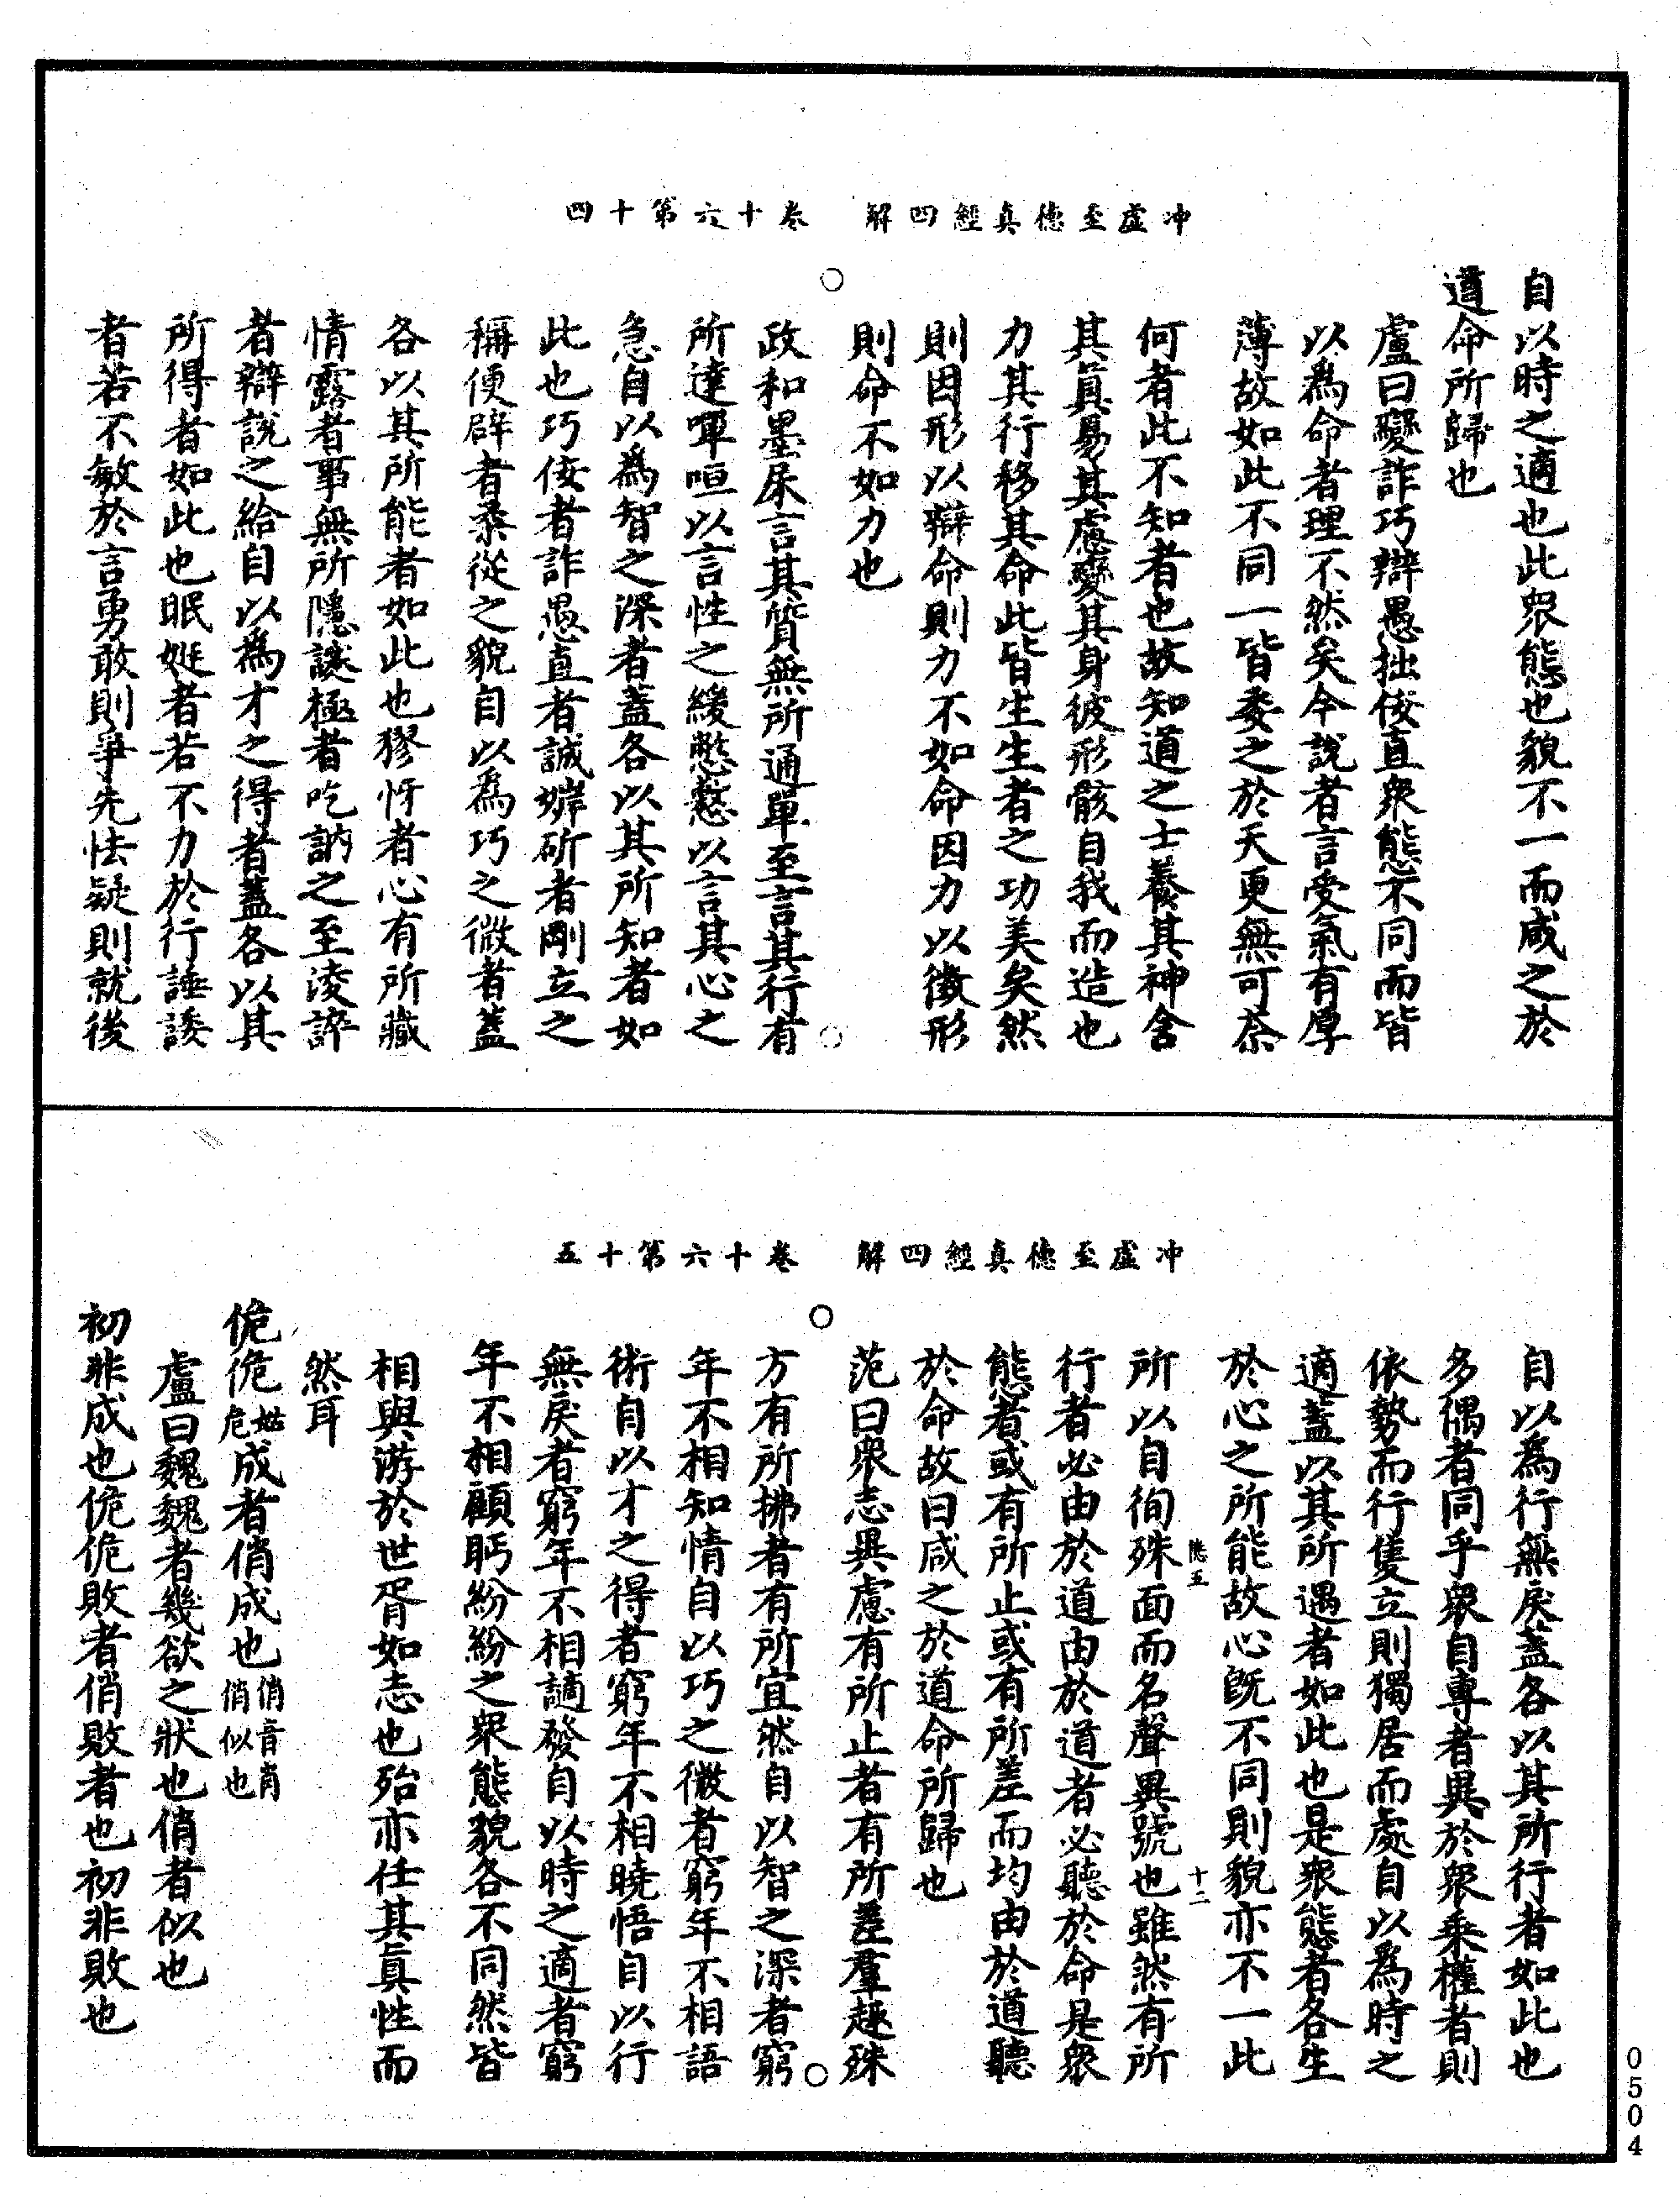 冲虛至德真經四解　卷十六第十四
自以時之適也此衆態也貌不一而咸之於
道命所歸也
盧曰變詐巧辯愚拙佞直衆態不同而皆
以為命者理不然矣今說者言受氣有厚
薄故如此不同一皆委之於天更無可柰
何者此不知者也故知道之士養其神含
其真易其慮變其身彼形骸自我而造也
力其行移其命此皆生生者之功美矣然
則因形以辯命則力不如命因力以徵形
則命不如力也
政和墨杘言其質無所通單至言其行有
所達嘽咺以言性之緩憋憗以言其心之
急自以為智之深者蓋各以其所知者如
此也巧佞者詐愚直者誠婩斫者剛立之
稱便辟者柔從之貌自以為巧之微者蓋
各以其所能者如此也㺒㤉者心有所藏
情露者事無所隱䜖極者吃訥之至淩誶
者辯說之給自以為才之得者蓋各以其
所得者如此也眠娗者若不力於行諈諉
者若不敏於言勇敢則爭先怯疑則就後
冲虛至德真經四解　卷十六第十五
自以為行無戾蓋各以其所行者如此也
多偶者同乎衆自專者異於衆乘權者則
依勢而行隻立則獨居而處自以為時之
適蓋以其所遇者如此也是衆態者各生
於心之所能故心旣不同則貌亦不一此
隐五　十二
所以自徇殊面而名聲異號也雖然有所
行者必由於道由於道者必聽於命是衆
態者或有所止或有所差而均由於道聽
於命故曰咸之於道命所歸也
范曰衆志異慮有所止者有所差羣趣殊
方有所拂者有所宜然自以智之深者窮
年不相知情自以巧之微者窮年不相語
術自以才之得者窮年不相曉悟自以行
無戾者窮年不相謫發自以時之適者窮
年不相顧眄紛紛之衆態貌各不同然皆
相與游於世胥如志也殆亦任其真性而
然耳
佹佹姑危成者俏成也俏音肖俏似也
盧曰魏魏者幾欲之狀也俏者似也
初非成也佹佹敗者俏敗者也初非敗也
0504